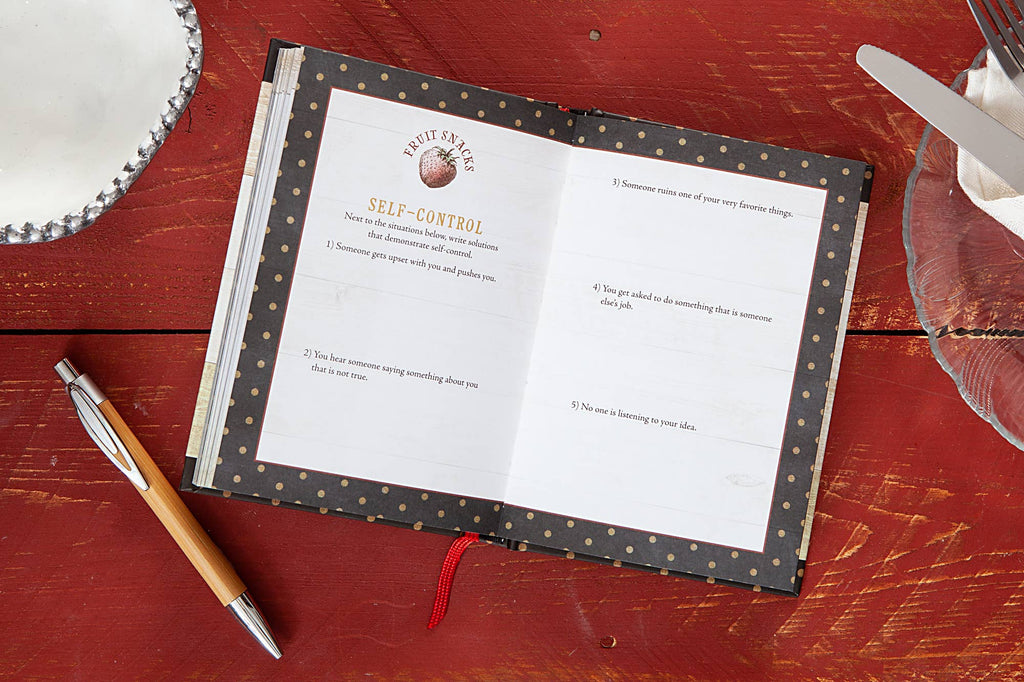 FRUIT SNACKS
SELF-CONTROL
Next to the situations below, write solutions
that demonstrate self-control.
1) Someone gets upset with you and pushes you.
2) You hear someone saying something about you
that is not true.
3) Someone ruins one of your very favorite things.
4) You get asked to do something that is someone
else's job.
5) No one is listening to your idea.